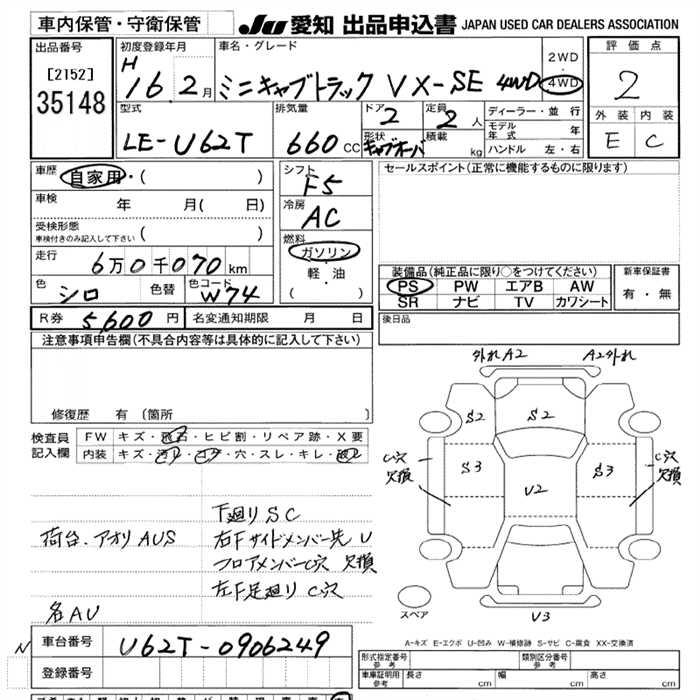 車内保管・守衛保管
JU 愛知 出品申込書 JAPAN USED CAR DEALERS ASSOCIATION
出品番号
[2152]
35148
初度登録年月
H 16.2月
車名・グレード
ミニキャブトラック VX-SE 4WD
2WD
・
4WD
評価点
2
外装 内装
E C
型式
LE-U62T
排気量
660 CC
ドア
2
定員
2人
形状
キャブオーバ
積載
kg
ディーラー・並行
モデル年式 年
ハンドル 左・右
車歴
自家用・( )
車検 年 月( 日)
受検形態
車検付きのみ記入して下さい ( )
走行
6万0千070km
色
シロ
色替
色コード
W74
シフト
F5
冷房
AC
燃料
ガソリン
軽・油
( )
セールスポイント(正常に機能するものに限ります)
装備品(純正品に限り○をつけてください)
PS PW エアB AW
SR ナビ TV カワシート
新車保証書
有・無
R券 5,600円 名変通知期限 月 日
後日品
注意事項申告欄(不具合内容等は具体的に記入して下さい)
修復歴 有(箇所 )
検査員
記入欄
FW キズ・飛石・ヒビ割・リペア跡・X要
内装 キズ・汚レ・コゲ・穴・スレ・キレ・破レ
外れA2 A2外れ
S2 S2
C穴
欠損
S3
V2
S3
C穴
欠損
スペア
V3
下廻りSC
荷台、アオリAUS
右Fサイドメンバー先U
フロアメンバーC穴 欠損
左F足廻りC穴
名AU
A-キズ E-エクボ U-凹み W-補修跡 S-サビ C-腐食 XX-交換済
N
車台番号 U62T-0906249
登録番号
形式指定番号
参考
類別区分番号
参考
車庫証明用
参考
長さ cm 幅 cm 高さ cm